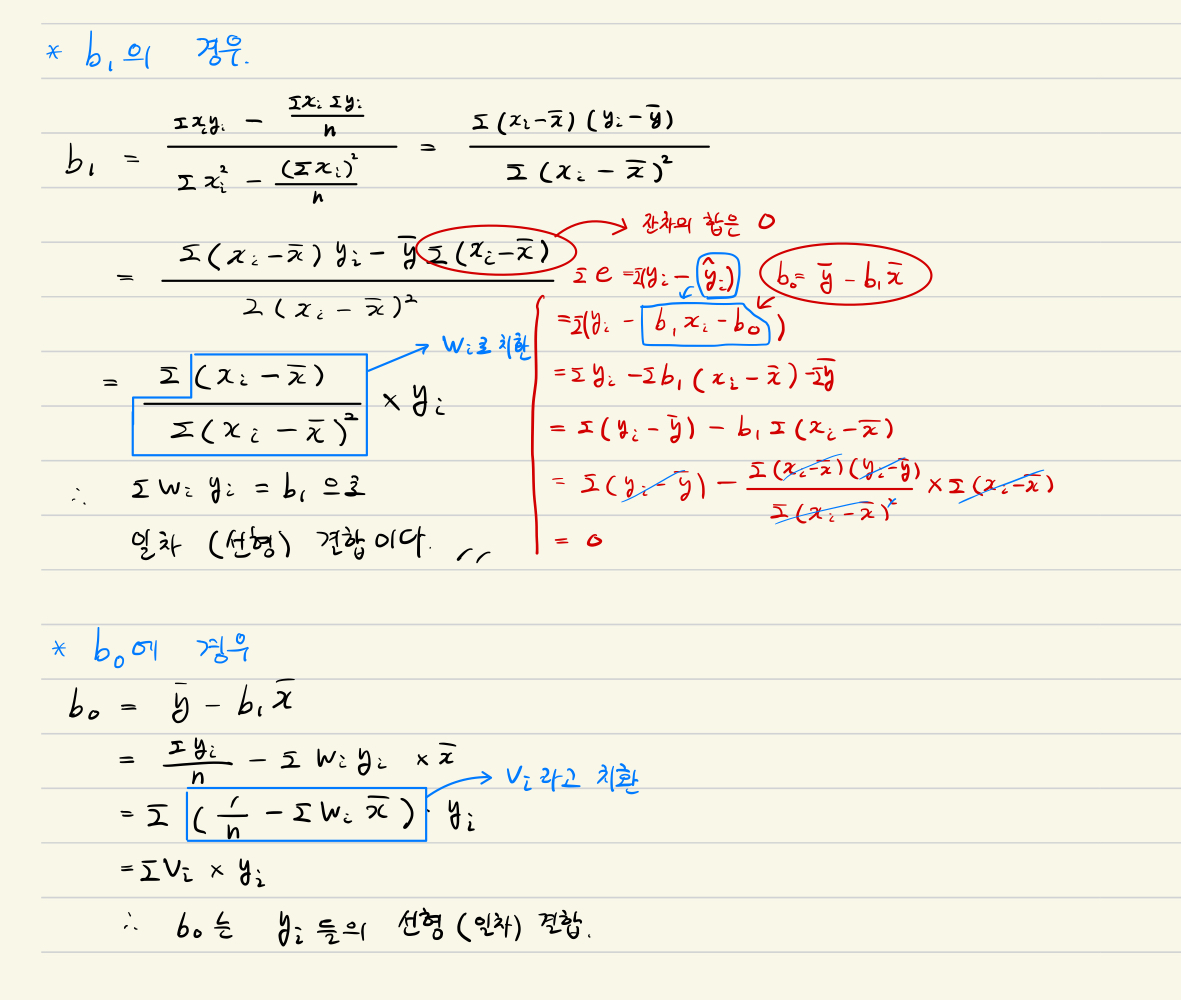 * b₁의 경우.
b₁ = (Σxᵢyᵢ − (Σxᵢ Σyᵢ)/n) / (Σxᵢ² − (Σxᵢ)²/n) = Σ(xᵢ−x̄)(yᵢ−ȳ) / Σ(xᵢ−x̄)²
= (Σ(xᵢ−x̄)yᵢ − ȳ Σ(xᵢ−x̄)) / Σ(xᵢ−x̄)²
→ 잔차의 합은 0
= Σ(xᵢ−x̄) / Σ(xᵢ−x̄)² × yᵢ
→ Wᵢ로 치환
∴ ΣWᵢyᵢ = b₁ 으로
일차 (선형) 결합이다. 〃
Σe = Σ(yᵢ − ŷᵢ) b₀ = ȳ − b₁x̄
= Σ(yᵢ − b₁xᵢ − b₀)
= Σyᵢ − Σb₁(xᵢ − x̄) − Σȳ
= Σ(yᵢ − ȳ) − b₁Σ(xᵢ − x̄)
= Σ(yᵢ − ȳ) − Σ(xᵢ−x̄)(yᵢ−ȳ) / Σ(xᵢ−x̄)² × Σ(xᵢ−x̄)
= 0
* b₀에 경우
b₀ = ȳ − b₁x̄
= Σyᵢ/n − ΣWᵢyᵢ × x̄
= Σ(1/n − ΣWᵢx̄)·yᵢ
→ Vᵢ라고 치환
= ΣVᵢ × yᵢ
∴ b₀는 yᵢ들의 선형(일차) 결합.